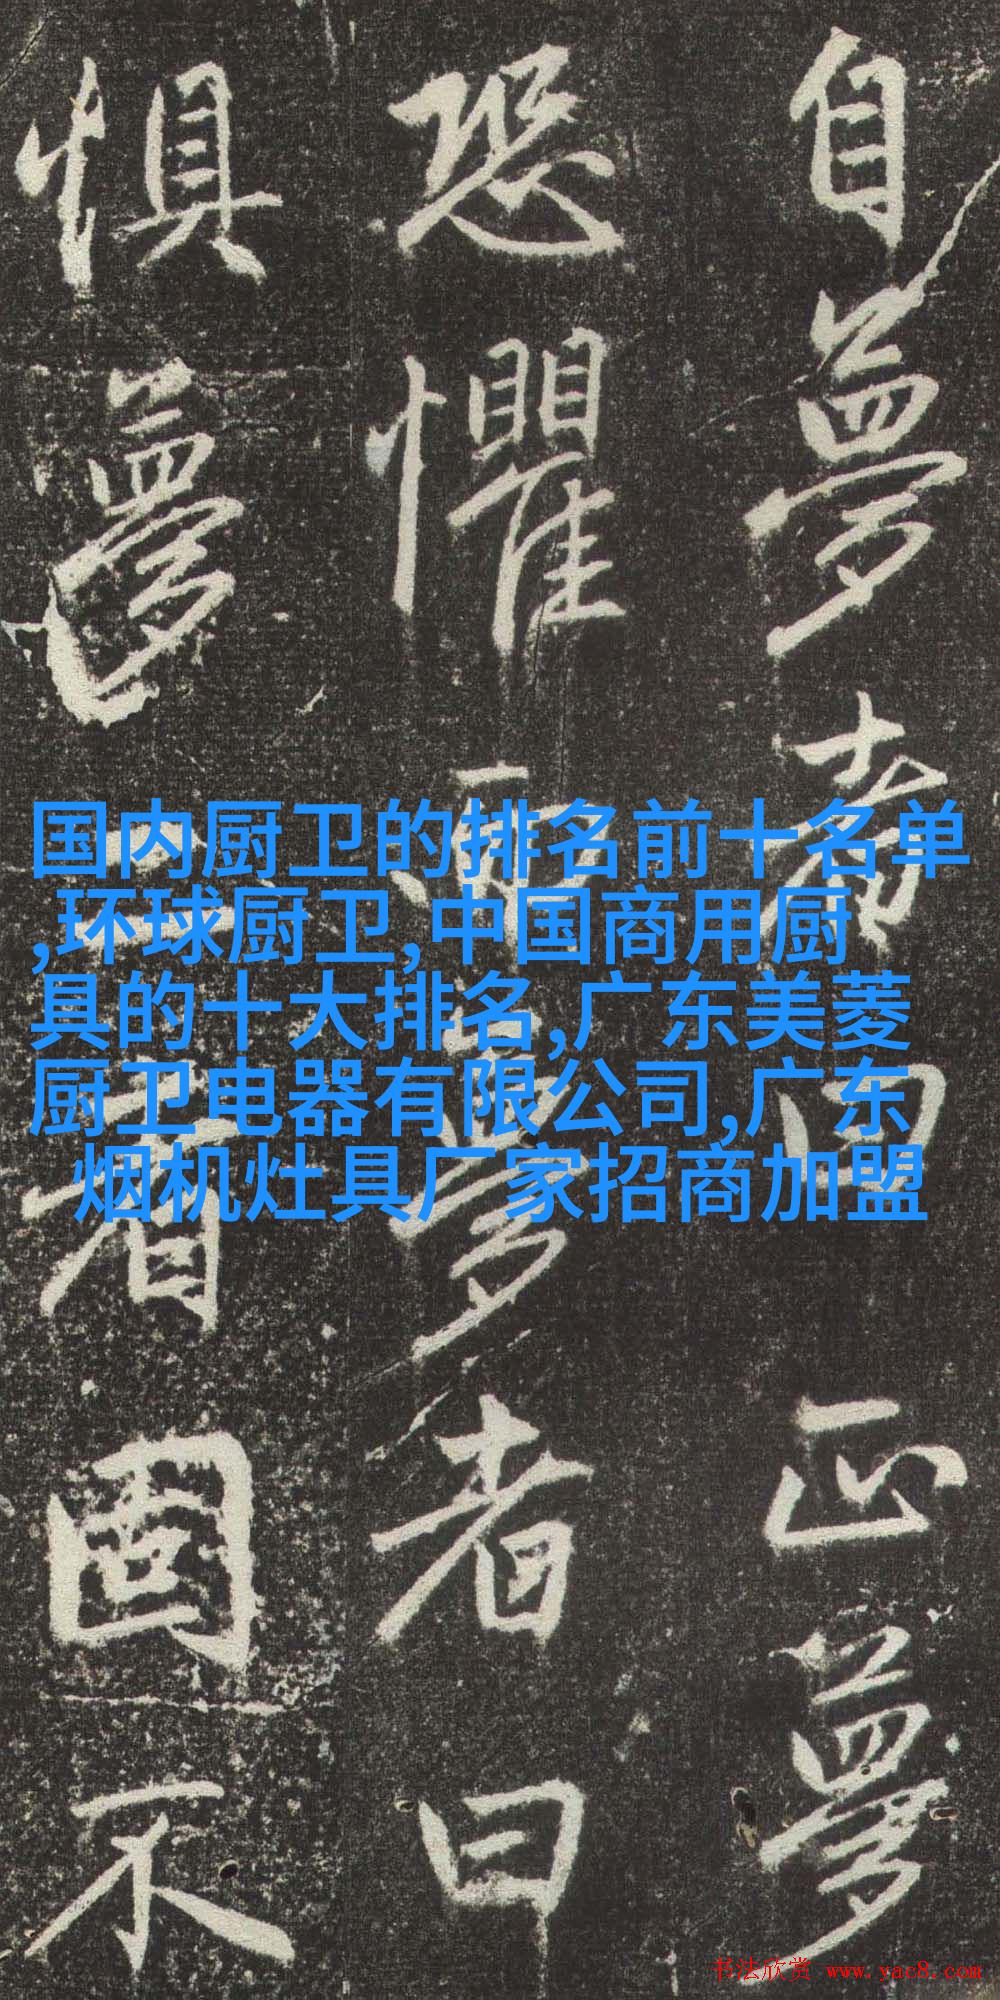 自夢者曰正夢
恐懼而夢者曰
惧夢者固不
国内厨卫的排名前十名单
,环球厨卫,中国商用厨
具的十大排名,广东美菱
厨卫电器有限公司,广东
烟机灶具厂家招商加盟
书法欣赏 www.yac8.com